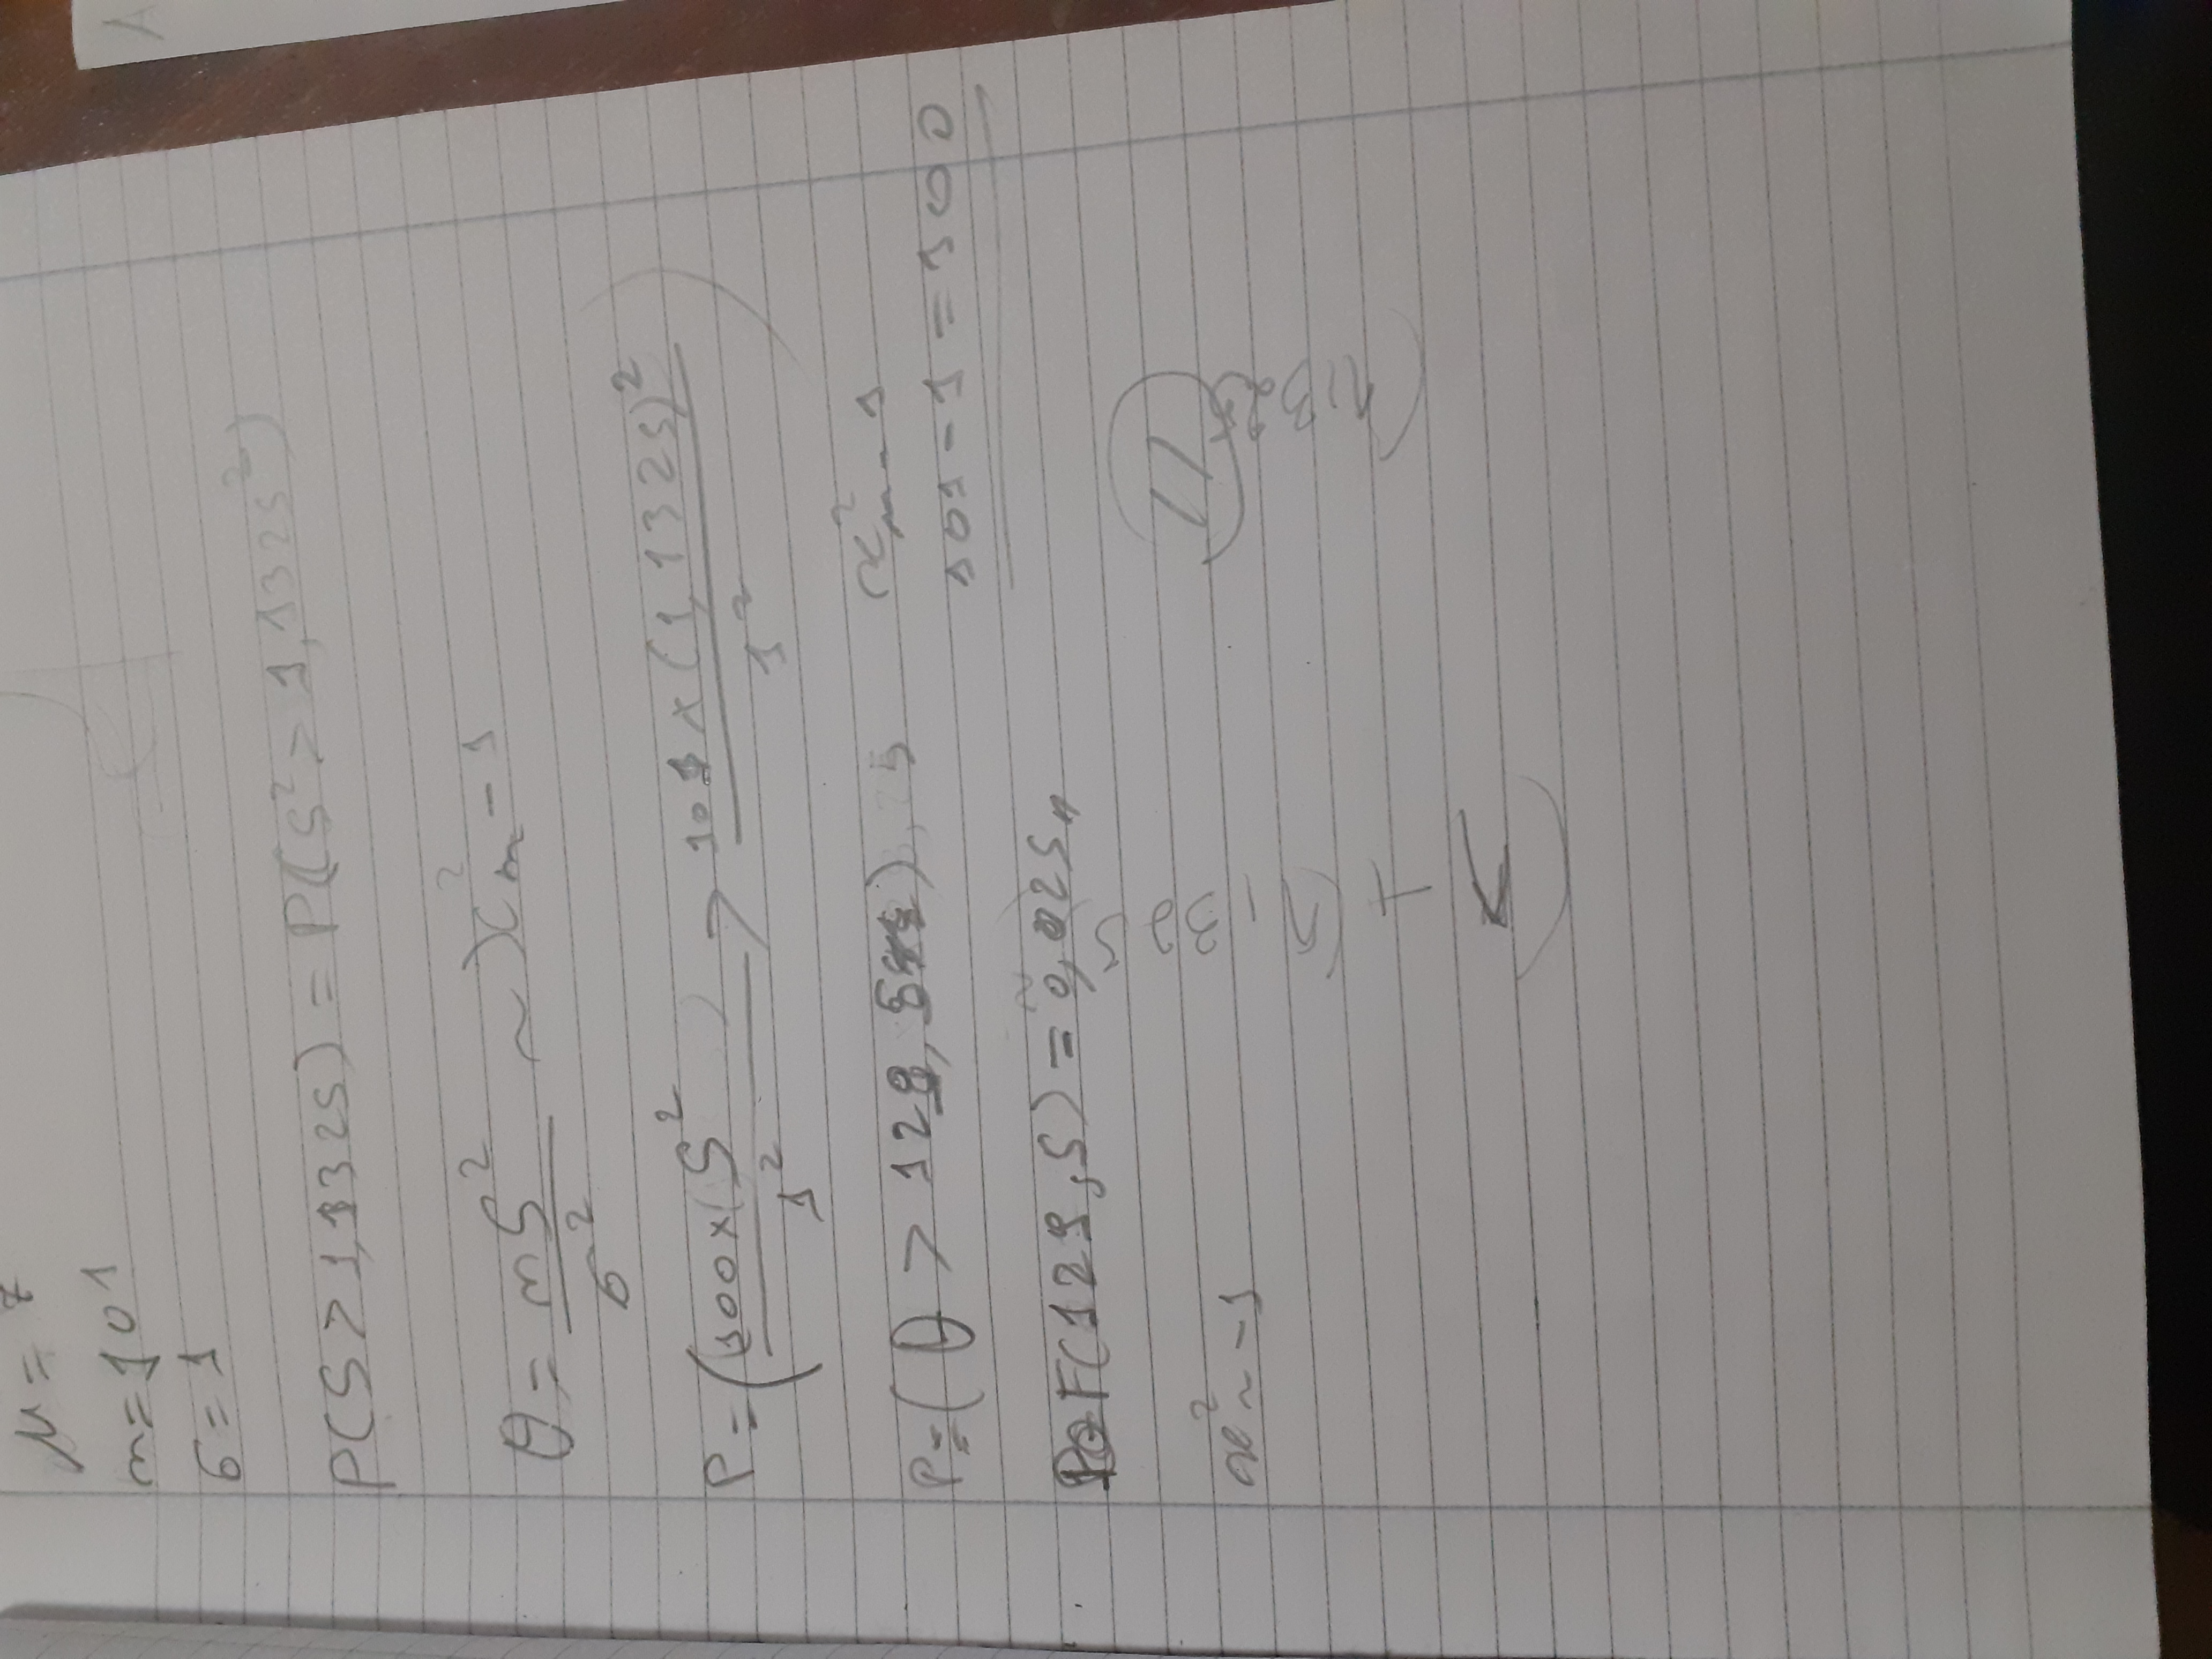 μ = 7
n = 101
σ = 1
P(S > 1,1325) = P(S² > 1,1325²)
θ = nS² / σ² ~ χ²n - 1
P = (100 x S² / 1² > 101 x (1,1325)² / 1²)
P = (θ > 129,5
x²n - 1
101 - 1 = 100
F(129,5) = 0,025
x² - 1